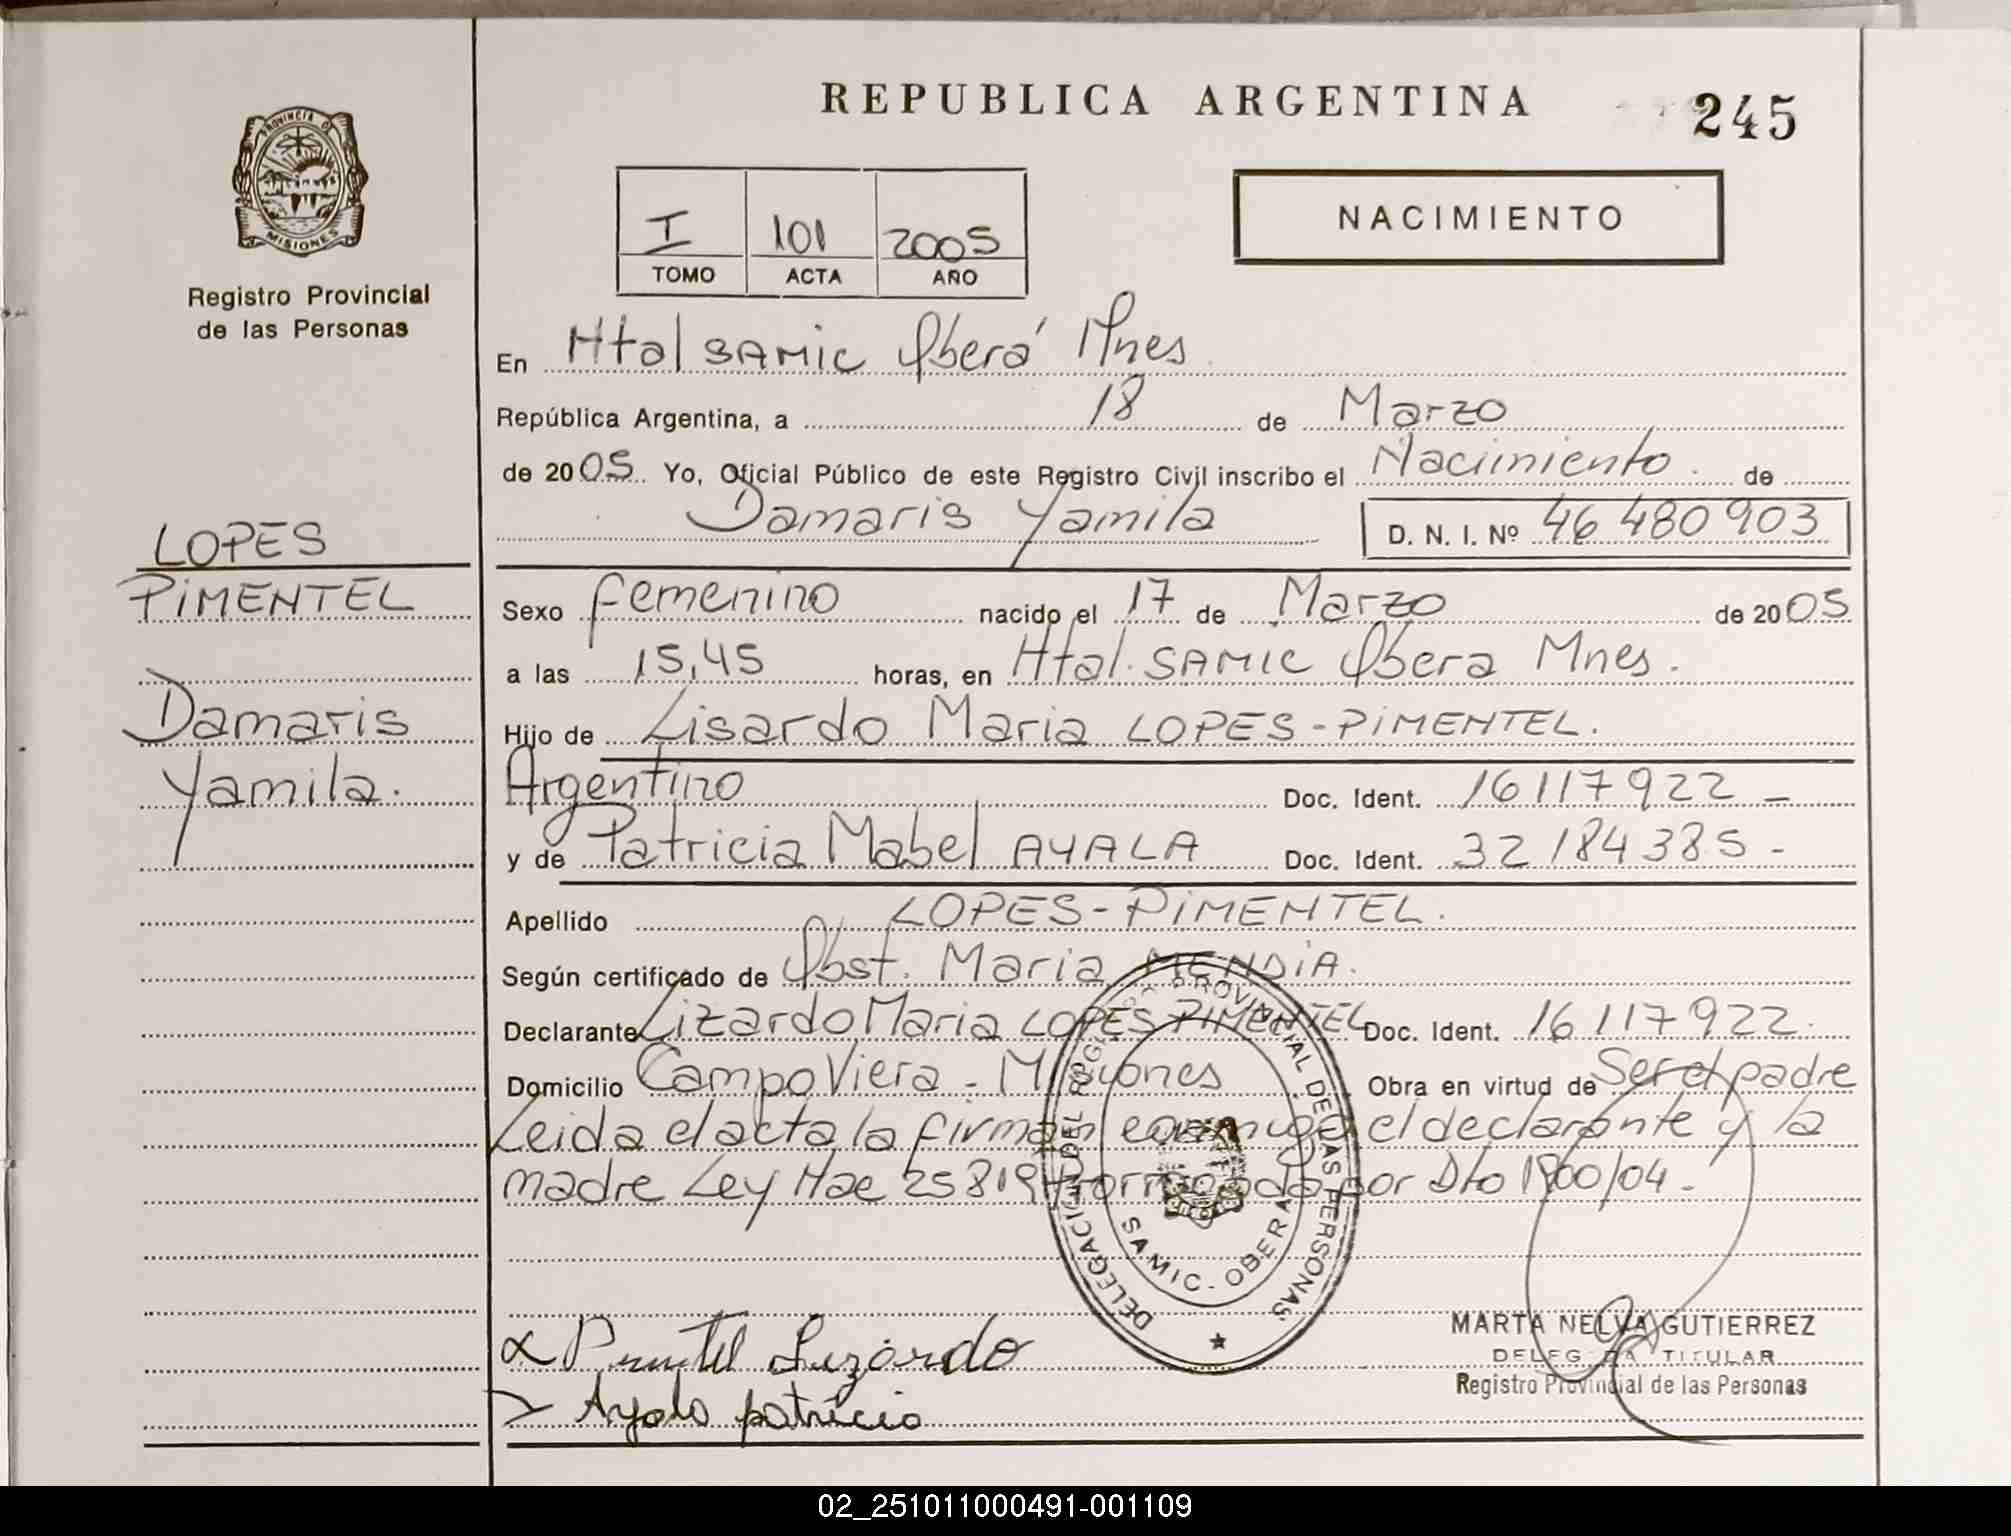 REPUBLICA ARGENTINA
245
PROVINCIA DE
MISIONES
Registro Provincial
de las Personas
I 101 2005
TOMO ACTA AÑO
NACIMIENTO
En Htal SAMIC Oberá Mnes
República Argentina, a 18 de Marzo
de 2005. Yo, Oficial Público de este Registro Civil inscribo el Nacimiento. de
Damaris Yamila D. N. I. Nº 46 480 903
LOPES
PIMENTEL
Damaris
Yamila.
Sexo femenino nacido el 17 de Marzo de 2005
a las 15,45 horas, en Htal. SAMIC Obera Mnes.
Hijo de Lisardo Maria LOPES-PIMENTEL.
Argentino Doc. Ident. 16117922 -
y de Patricia Mabel AYALA Doc. Ident. 32184385-
Apellido LOPES-PIMENTEL.
Según certificado de Obst. Maria MENDIA.
Declarante Lizardo Maria LOPES PIMENTEL Doc. Ident. 16117922.
Domicilio Campo Viera - Misiones Obra en virtud de Ser el padre
Leida el acta la firman conmigo el declarante y la
madre Ley Nac 25819 Prorrogada por Dto 1900/04-
DELEGACION DEL REGISTRO PROVINCIAL DE LAS PERSONAS
SAMIC - OBERA
Pimentel Lizardo
Ayala patricia
MARTA NELVA GUTIERREZ
DELEGADA TITULAR
Registro Provincial de las Personas
02_251011000491-001109